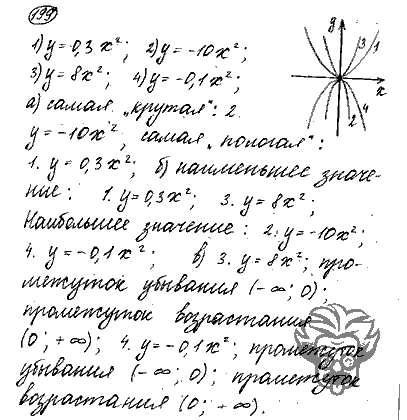 199
1) y = 0,3x²; 2) y = -10x²;
3) y = 8x²; 4) y = -0,1x²;
а) самая „крутая“: 2.
y = -10x², самая „пологая“:
1. y = 0,3x²; б) наименьшее значе-
ние: 1. y = 0,3x²; 3. y = 8x²;
Наибольшее значение: 2. y = -10x²;
4. y = -0,1x²; в) 3. y = 8x²; про-
межуток убывания (-∞; 0);
промежуток возрастания
(0; +∞); 4. y = -0,1x²; промежуток
убывания (-∞; 0); промежуток
возрастания (0; +∞).
y
3 1
x
2 4